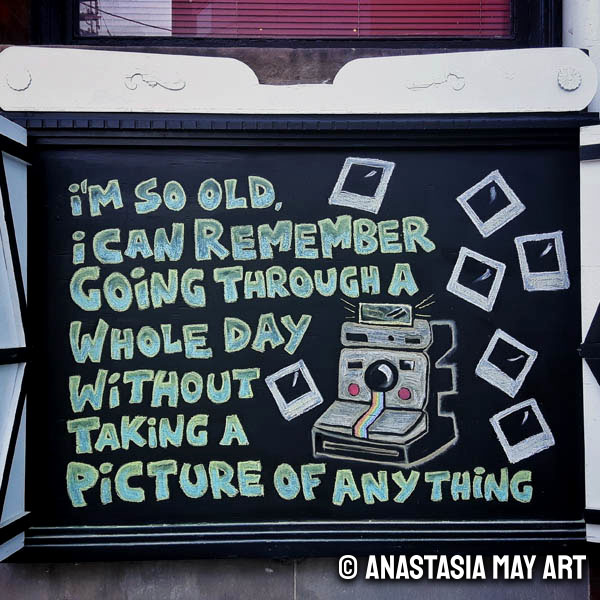 i'M SO OLD,
i CAN REMEMBER
GOiNG THROUGH A
WHOLE DAY
WiTHOUT
TAKiNG A
PiCTURE OF ANYTHiNG
© ANASTASIA MAY ART